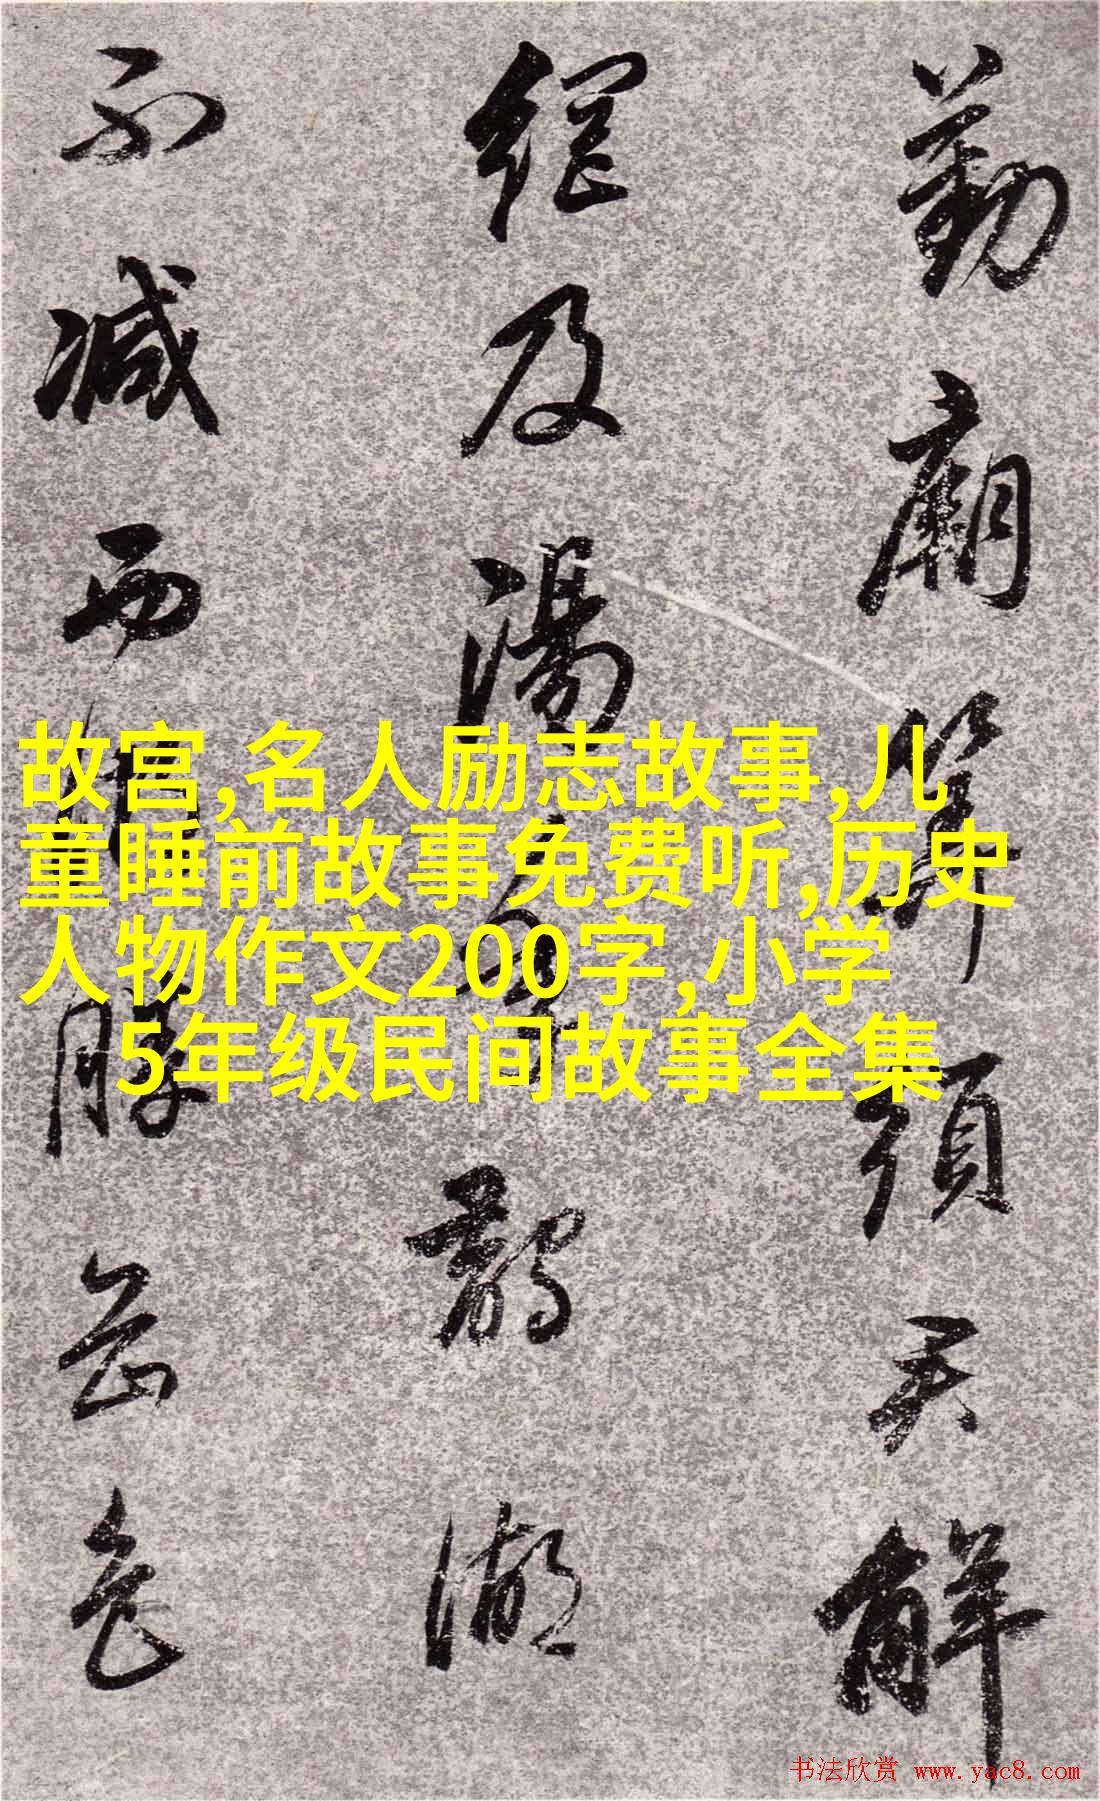 故宫,名人励志故事,儿
童睡前故事免费听,历史
人物作文200字,小学
5年级民间故事全集
勤廟算須君解
網及湯
鵲湖
不減西
勝
色
书法欣赏 www.yac8.com